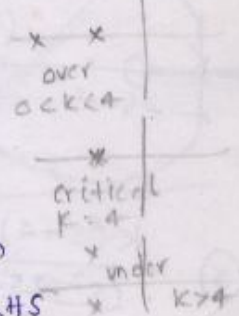 over
0<K<4
critical
K = 4
under
HS K>4